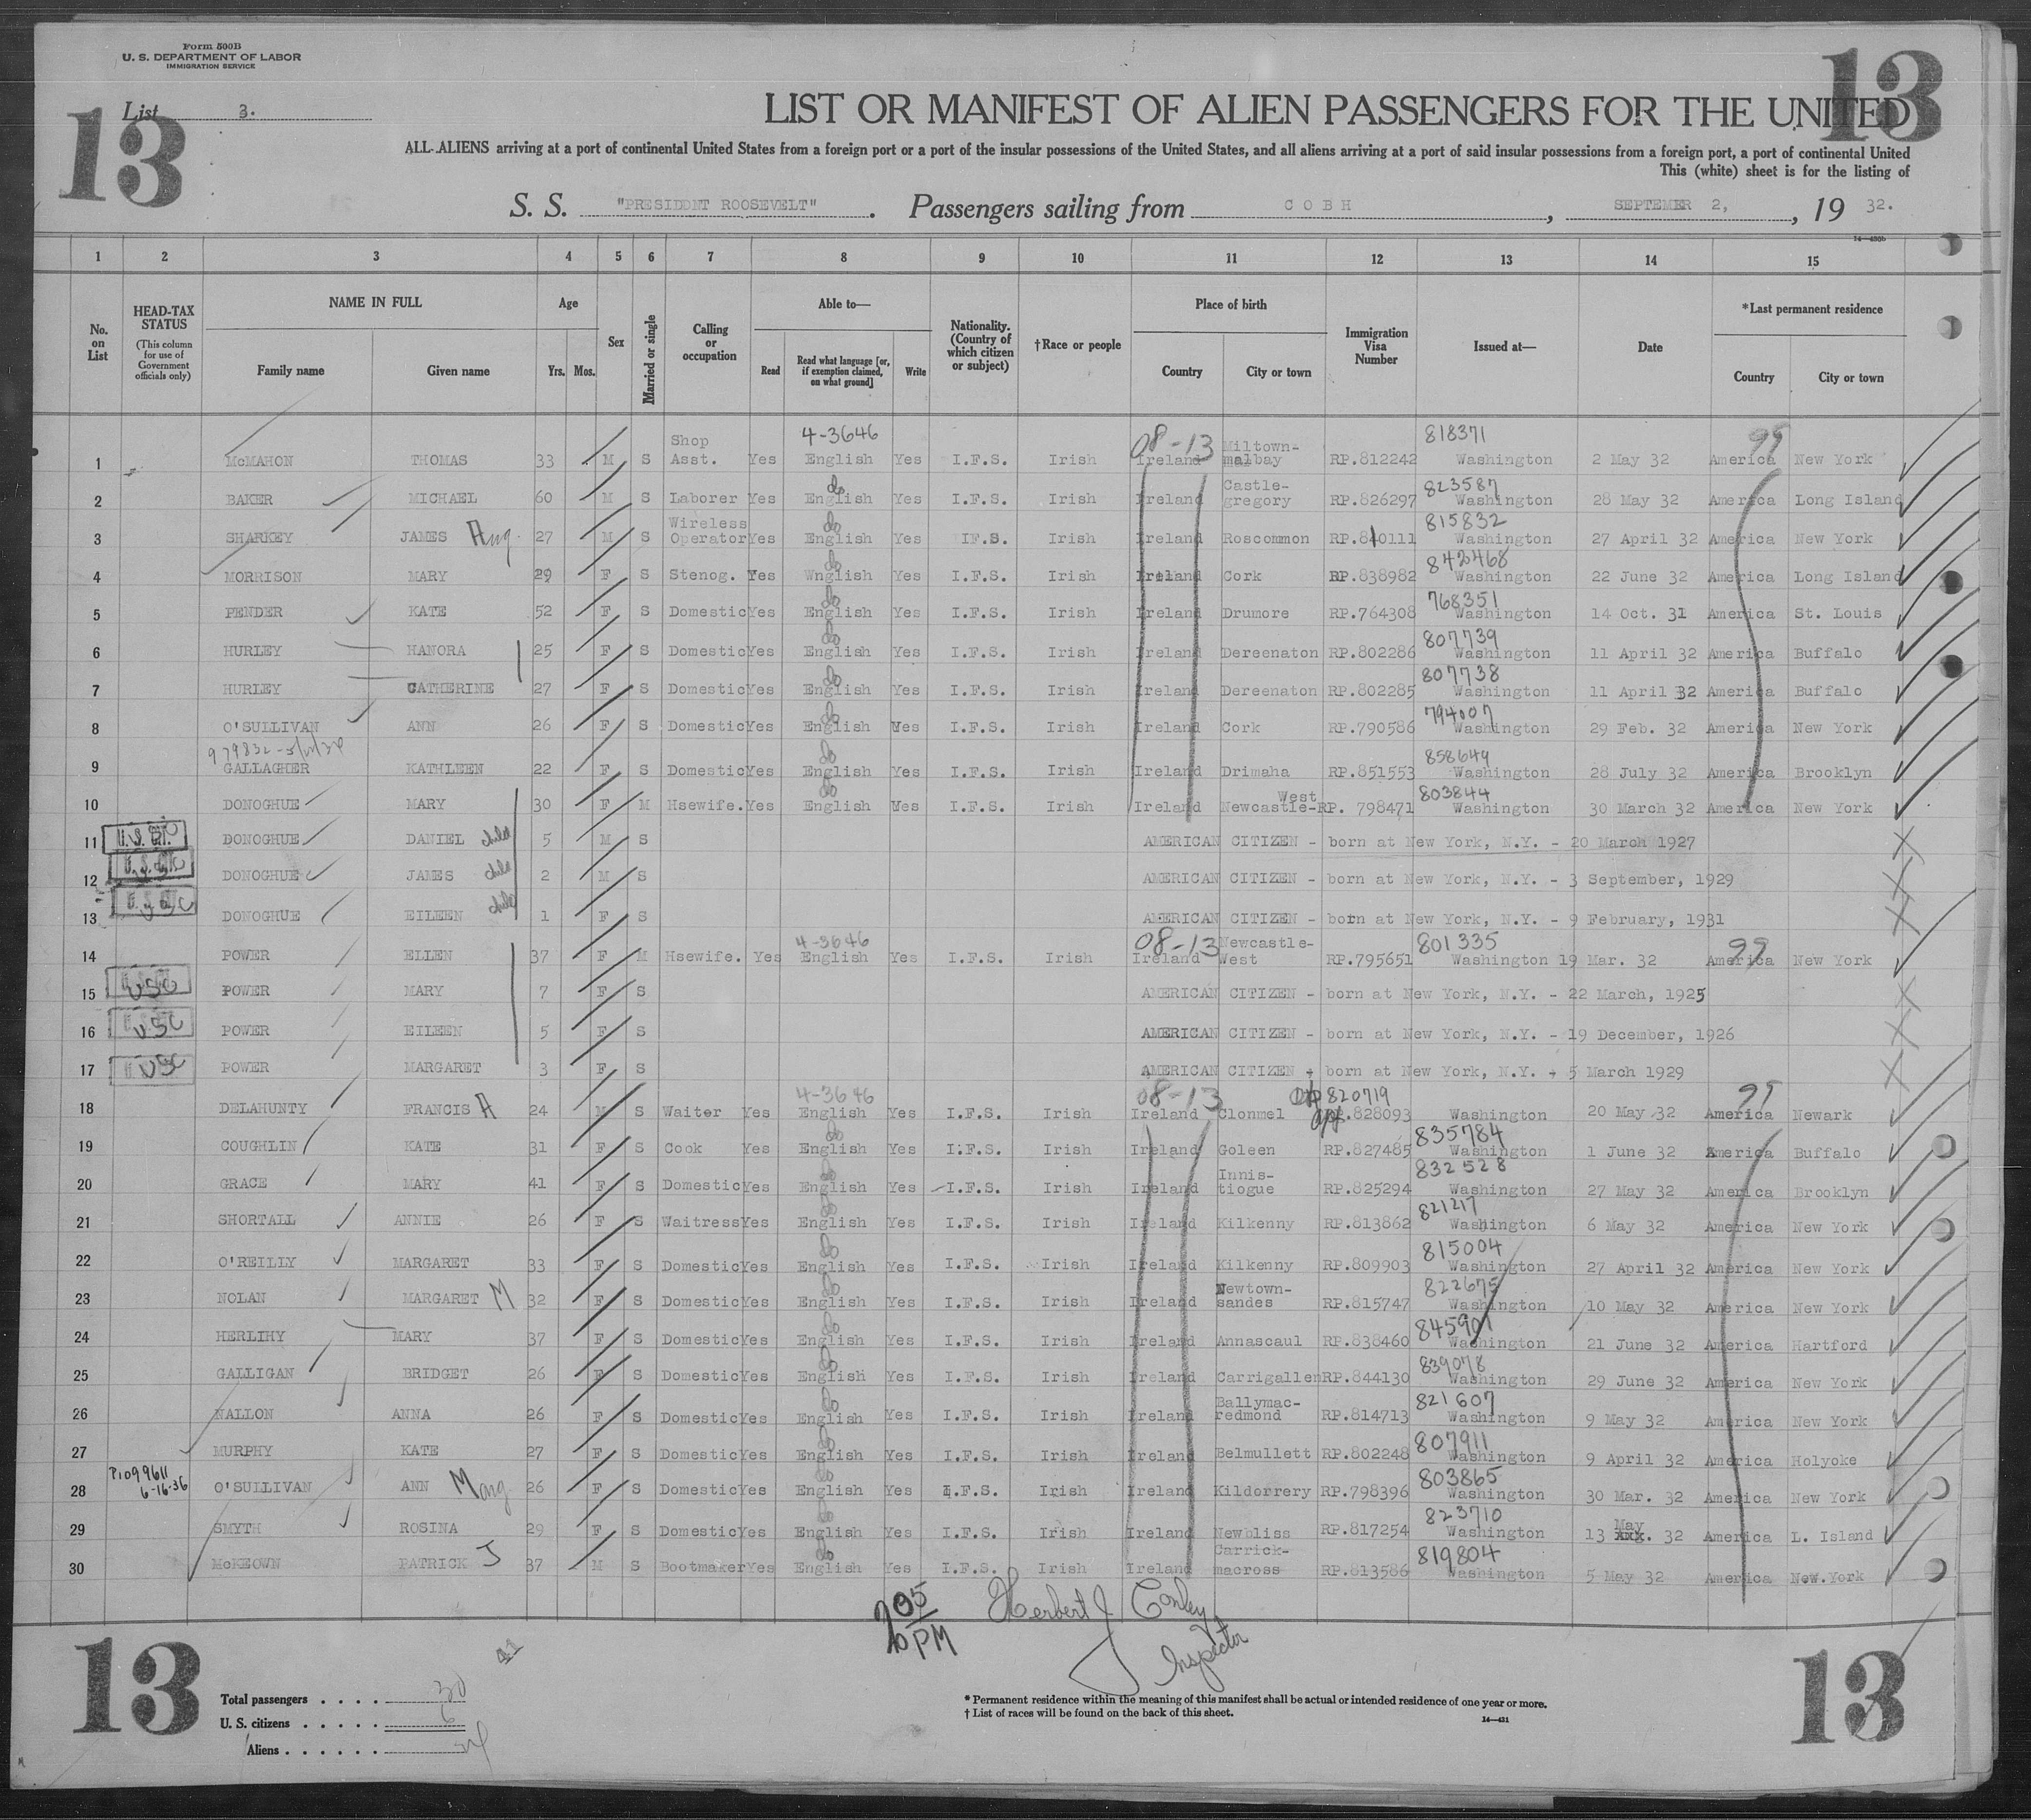 Form 500B
U. S. DEPARTMENT OF LABOR
IMMIGRATION SERVICE
13
13
List 3.
LIST OR MANIFEST OF ALIEN PASSENGERS FOR THE UNITED
ALL ALIENS arriving at a port of continental United States from a foreign port or a port of the insular possessions of the United States, and all aliens arriving at a port of said insular possessions from a foreign port, a port of continental United
This (white) sheet is for the listing of
S. S. "PRESIDDNT ROOSEVELT". Passengers sailing from COBH, SEPTEMER 2, 19 32.
14—430b
1 2 3 4 5 6 7 8 9 10 11 12 13 14 15
No. on List HEAD-TAX STATUS (This column for use of Government officials only) NAME IN FULL Family name Given name Age Yrs. Mos. Sex Married or single Calling or occupation Able to— Read Read what language [or, if exemption claimed, on what ground] Write Nationality. (Country of which citizen or subject) †Race or people Place of birth Country City or town Immigration Visa Number Issued at— Date *Last permanent residence Country City or town
1 McMAHON THOMAS 33 M S Shop Asst. Yes 4-3646 English Yes I.F.S. Irish 08-13 Ireland Miltown-malbay RP.812242 818371 Washington 2 May 32 99 America New York
2 BAKER MICHAEL 60 M S Laborer Yes do English Yes I.F.S. Irish Ireland Castle-gregory RP.826297 823587 Washington 28 May 32 America Long Island
3 SHARKEY JAMES Aug. 27 M S Wireless Operator Yes do English Yes IF.S. Irish Ireland Roscommon RP.810111 815832 Washington 27 April 32 America New York
4 MORRISON MARY 29 F S Stenog. Yes do Wnglish Yes I.F.S. Irish Ireland Cork RP.838982 842468 Washington 22 June 32 America Long Island
5 PENDER KATE 52 F S Domestic Yes do English Yes I.F.S. Irish Ireland Drumore RP.764308 768351 Washington 14 Oct. 31 America St. Louis
6 HURLEY HANORA 25 F S Domestic Yes do English Yes I.F.S. Irish Ireland Dereenaton RP.802286 807739 Washington 11 April 32 America Buffalo
7 HURLEY CATHERINE 27 F S Domestic Yes do English Yes I.F.S. Irish Ireland Dereenaton RP.802285 807738 Washington 11 April 32 America Buffalo
8 O'SULLIVAN ANN 26 F S Domestic Yes do English Yes I.F.S. Irish Ireland Cork RP.790586 794007 Washington 29 Feb. 32 America New York
9 GALLAGHER KATHLEEN 22 F S Domestic Yes do English Yes I.F.S. Irish Ireland Drimaha RP.851553 858649 Washington 28 July 32 America Brooklyn
10 DONOGHUE MARY 30 F M Hsewife. Yes do English Yes I.F.S. Irish Ireland Newcastle-West RP. 798471 803844 Washington 30 March 32 America New York
11 DONOGHUE DANIEL child 5 M S AMERICAN CITIZEN - born at New York, N.Y. - 20 March 1927
12 DONOGHUE JAMES child 2 M S AMERICAN CITIZEN - born at New York, N.Y. - 3 September, 1929
13 DONOGHUE EILEEN child 1 F S AMERICAN CITIZEN - born at New York, N.Y. - 9 February, 1931
14 POWER ELLEN 37 F M Hsewife. Yes 4-3646 English Yes I.F.S. Irish 08-13 Ireland Newcastle-West RP.795651 801335 Washington 19 Mar. 32 99 America New York
15 USC POWER MARY 7 F S AMERICAN CITIZEN - born at New York, N.Y. - 22 March, 1925
16 USC POWER EILEEN 5 F S AMERICAN CITIZEN - born at New York, N.Y. - 19 December, 1926
17 USC POWER MARGARET 3 F S AMERICAN CITIZEN - born at New York, N.Y. - 5 March 1929
18 DELAHUNTY FRANCIS A 24 M S Waiter Yes 4-3646 English Yes I.F.S. Irish 08-13 Ireland Clonmel 820719 828093 Washington 20 May 32 99 America Newark
19 COUGHLIN KATE 31 F S Cook Yes do English Yes I.F.S. Irish Ireland Goleen RP.827485 835784 Washington 1 June 32 America Buffalo
20 GRACE MARY 41 F S Domestic Yes do English Yes I.F.S. Irish Ireland Innis-tiogue RP.825294 832528 Washington 27 May 32 America Brooklyn
21 SHORTALL ANNIE 26 F S Waitress Yes do English Yes I.F.S. Irish Ireland Kilkenny RP.813862 821217 Washington 6 May 32 America New York
22 O'REILLY MARGARET 33 F S Domestic Yes do English Yes I.F.S. Irish Ireland Kilkenny RP.809903 815004 Washington 27 April 32 America New York
23 NOLAN MARGARET M 32 F S Domestic Yes do English Yes I.F.S. Irish Ireland Newtown-sandes RP.815747 822675 Washington 10 May 32 America New York
24 HERLIHY MARY 37 F S Domestic Yes do English Yes I.F.S. Irish Ireland Annascaul RP.838460 845901 Washington 21 June 32 America Hartford
25 GALLIGAN BRIDGET 26 F S Domestic Yes do English Yes I.F.S. Irish Ireland Carrigallen RP.844130 839078 Washington 29 June 32 America New York
26 NALLON ANNA 26 F S Domestic Yes do English Yes I.F.S. Irish Ireland Ballymac-redmond RP.814713 821607 Washington 9 May 32 America New York
27 MURPHY KATE 27 F S Domestic Yes do English Yes I.F.S. Irish Ireland Belmullett RP.802248 807911 Washington 9 April 32 America Holyoke
28 P1099611 6-16-36 O'SULLIVAN ANN Marg 26 F S Domestic Yes do English Yes I.F.S. Irish Ireland Kildorrery RP.798396 803865 Washington 30 Mar. 32 America New York
29 SMYTH ROSINA 29 F S Domestic Yes do English Yes I.F.S. Irish Ireland Newbliss RP.817254 823710 Washington 13 May 32 America L. Island
30 McKEOWN PATRICK J 37 M S Bootmaker Yes do English Yes I.F.S. Irish Ireland Carrick-macross RP.813586 819804 Washington 5 May 32 America New.York
205 PM Herbert J Conley
Inspector
13
13
Total passengers . . . . 30
U. S. citizens . . . . . 6
Aliens . . . . . . 24
* Permanent residence within the meaning of this manifest shall be actual or intended residence of one year or more.
† List of races will be found on the back of this sheet.
14—431